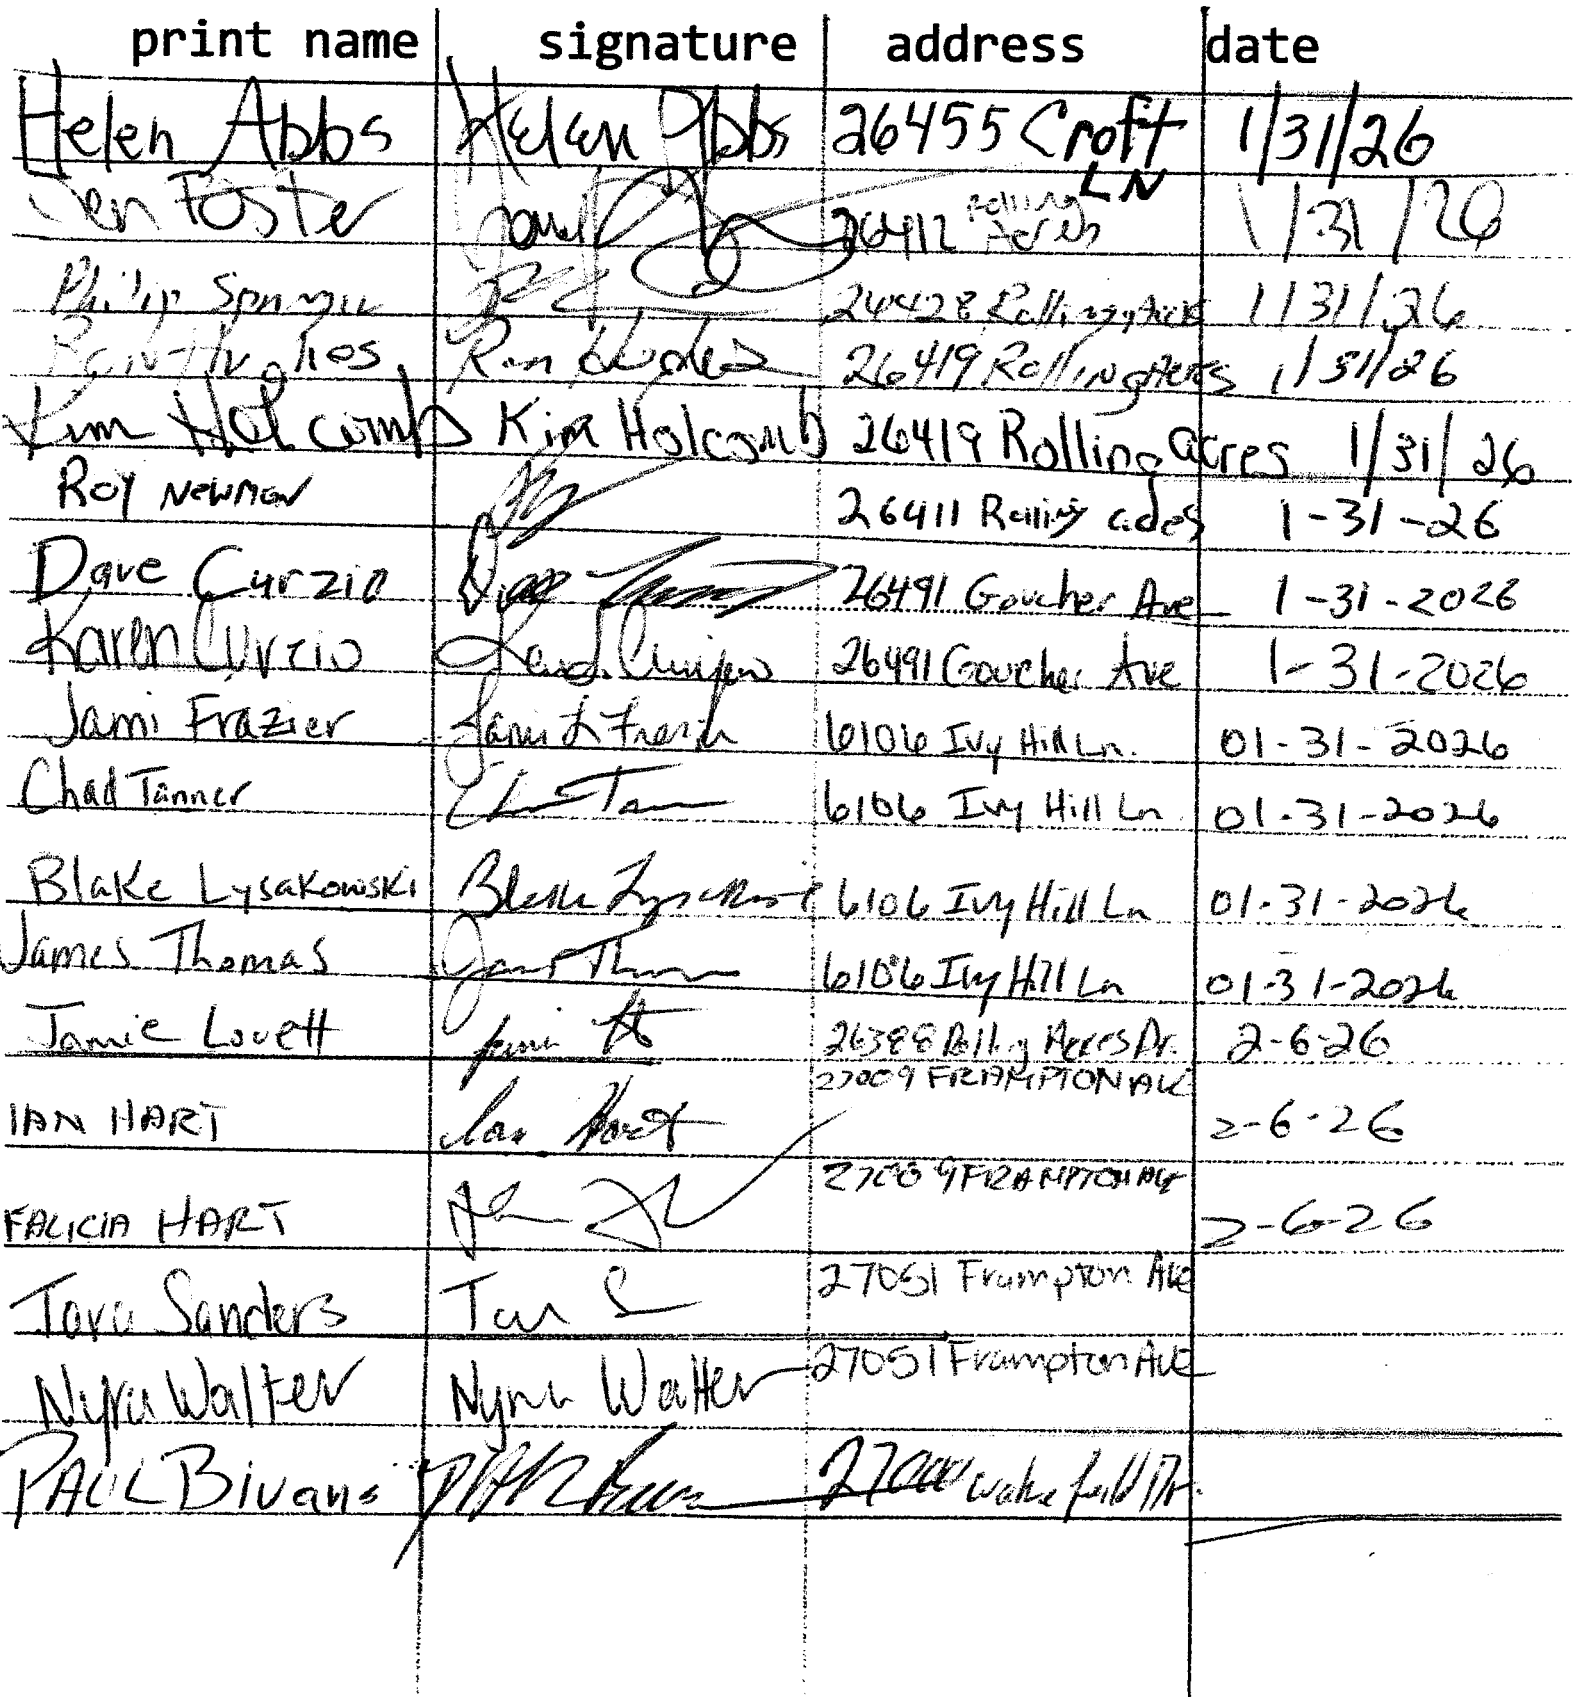 print name signature address date
Helen Abbs Helen Abbs 26455 Croft LN 1/31/26
Jen Foster 26412 Rolling Acres 1/31/26
Philip 26428 Rolling 1/31/26
Ron Hughes Ron Hughes 26419 Rolling Acres 1/31/26
Kim Holcomb Kim Holcomb 26419 Rolling acres 1/31/26
Roy Newman 26411 Rolling 1-31-26
Dave Curzio 26491 Goucher Ave 1-31-2026
Karen Curzio 26491 Goucher Ave 1-31-2026
Jami Frazier Jami L Frazier 6106 Ivy Hill Ln. 01-31-2026
Chad Tanner 6106 Ivy Hill Ln 01-31-2026
Blake Lysakowski Blake Lysakowski 6106 Ivy Hill Ln 01-31-2026
James Thomas 6106 Ivy Hill Ln 01-31-2026
Jamie Lovett 26388 Rolling Acres Dr. 2-6-26
IAN HART Ian Hart 27009 FRAMPTON AVE 2-6-26
FALICIA HART 27009 FRAMPTON AVE 2-6-26
Tara Sanders Tara S 27051 Frampton Ave
Nyra Walter Nyra Walter 27051 Frampton Ave
PAUL Bivans 27000 Wakefield Dr.